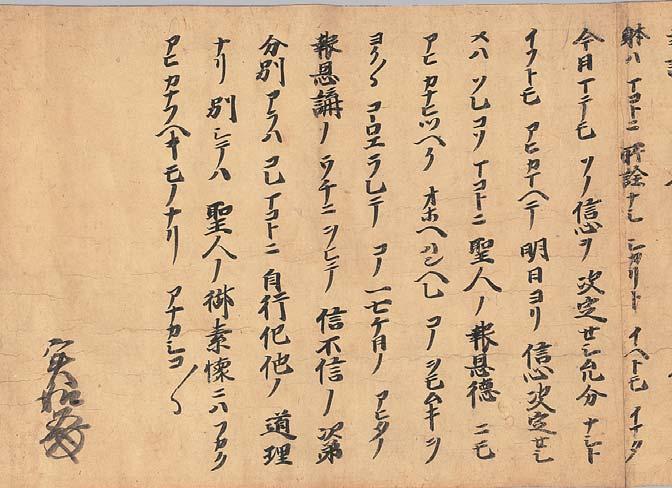 躰ハマコトニ所詮ナシシカリトイヘトモイマタ
今日マテモソノ信心ヲ決定セシム分ナシト
イフトモアヒカマヘテ明日ヨリ信心決定セシ
メハソレコソマコトニ聖人ノ報恩徳ニモ
アヒカナヒツヘクオホヘハンヘレコノヲモムキヲ
ヨク〳〵コーロエラレテコノ一七ケ日ノアヒタノ
報恩講ノウチニヲヒテ信不信ノ次第
分別アラハコレマコトニ自行化他ノ道理
ナリ別シテハ聖人ノ御素懐ニハフカク
アヒカナフヘキモノナリアナカシコ〳〵
実如